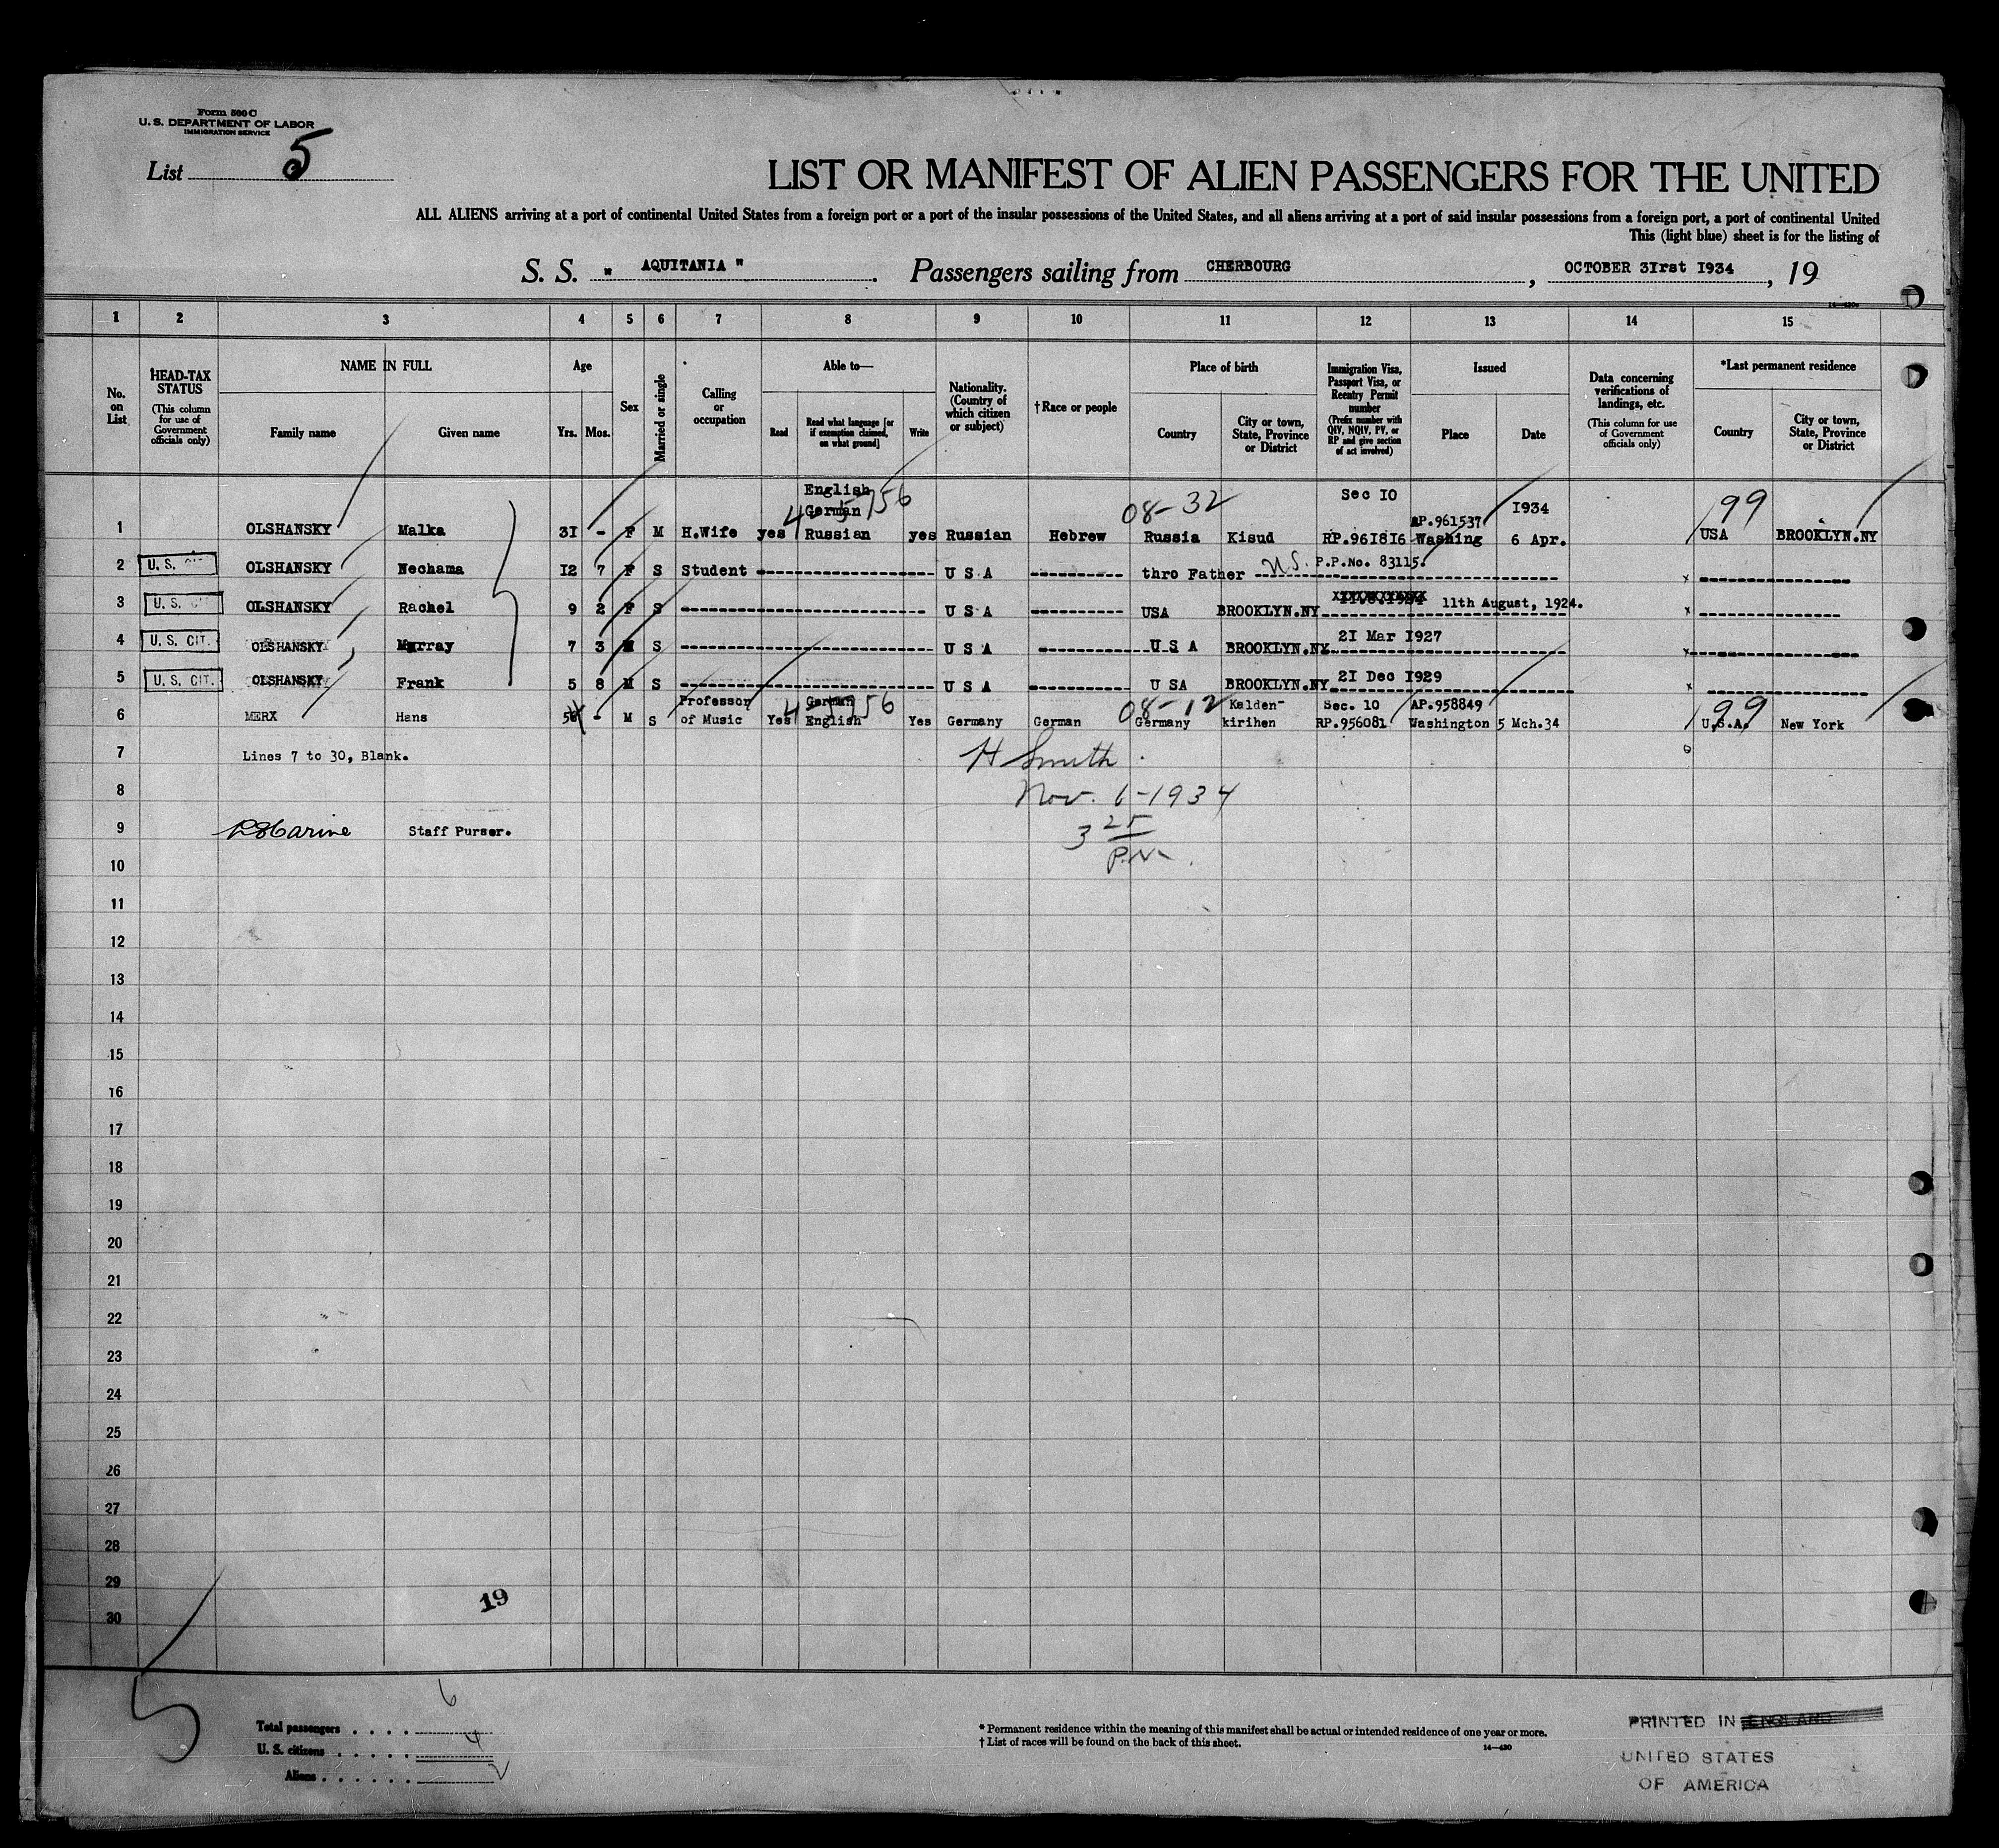 Form 500 C
U. S. DEPARTMENT OF LABOR
IMMIGRATION SERVICE
List 5
LIST OR MANIFEST OF ALIEN PASSENGERS FOR THE UNITED
ALL ALIENS arriving at a port of continental United States from a foreign port or a port of the insular possessions of the United States, and all aliens arriving at a port of said insular possessions from a foreign port, a port of continental United
This (light blue) sheet is for the listing of
S. S. " AQUITANIA " . Passengers sailing from CHERBOURG , OCTOBER 3Irst I934 , 19
14—430
1 2 3 4 5 6 7 8 9 10 11 12 13 14 15
No. on List
HEAD-TAX STATUS
(This column for use of Government officials only)
NAME IN FULL
Family name
Given name
Age
Yrs. Mos.
Sex
Married or single
Calling or occupation
Able to—
Read
Read what language [or if exemption claimed, on what ground]
Write
Nationality. (Country of which citizen or subject)
†Race or people
Place of birth
Country
City or town, State, Province or District
Immigration Visa, Passport Visa, or Reentry Permit number
(Prefix number with QIV, NQIV, PV, or RP and give section of act involved)
Issued
Place
Date
Data concerning verifications of landings, etc.
(This column for use of Government officials only)
*Last permanent residence
Country
City or town, State, Province or District
English
German
4-5756 08-32 Sec IO AP.961537 I934 99
1 OLSHANSKY Malka 3I - F M H.Wife yes Russian yes Russian Hebrew Russia Kisud RP.96I8I6 Washing 6 Apr. USA BROOKLYN.NY
2 U. S. CIT. OLSHANSKY Nechama I2 7 F S Student U S A thro Father U.S. P.P.No. 83115.
3 U. S. CIT. OLSHANSKY Rachel 9 2 F S U S A USA BROOKLYN.NY 11th August, 1924.
4 U. S. CIT. OLSHANSKY Murray 7 3 M S U S A U S A BROOKLYN.NY 2I Mar I927
5 U. S. CIT. OLSHANSKY Frank 5 8 M S U S A U SA BROOKLYN.NY 2I Dec I929
Professor German 4-5756 08-12 Kalden- Sec. 10 AP.958849 99
6 MERX Hans - M S of Music Yes English Yes Germany German Germany kirihen RP.956081 Washington 5 Mch.34 U.S.A. New York
7 Lines 7 to 30, Blank. H Smith
8 Nov. 6-1934
9 Staff Purser. 3 25
10 P.M.
11
12
13
14
15
16
17
18
19
20
21
22
23
24
25
26
27
28
29
30
19
5
Total passengers . . . . 6
U. S. citizens . . . . . 4
Aliens . . . . . . 2
* Permanent residence within the meaning of this manifest shall be actual or intended residence of one year or more.
† List of races will be found on the back of this sheet.
14—430
PRINTED IN ENGLAND
UNITED STATES
OF AMERICA